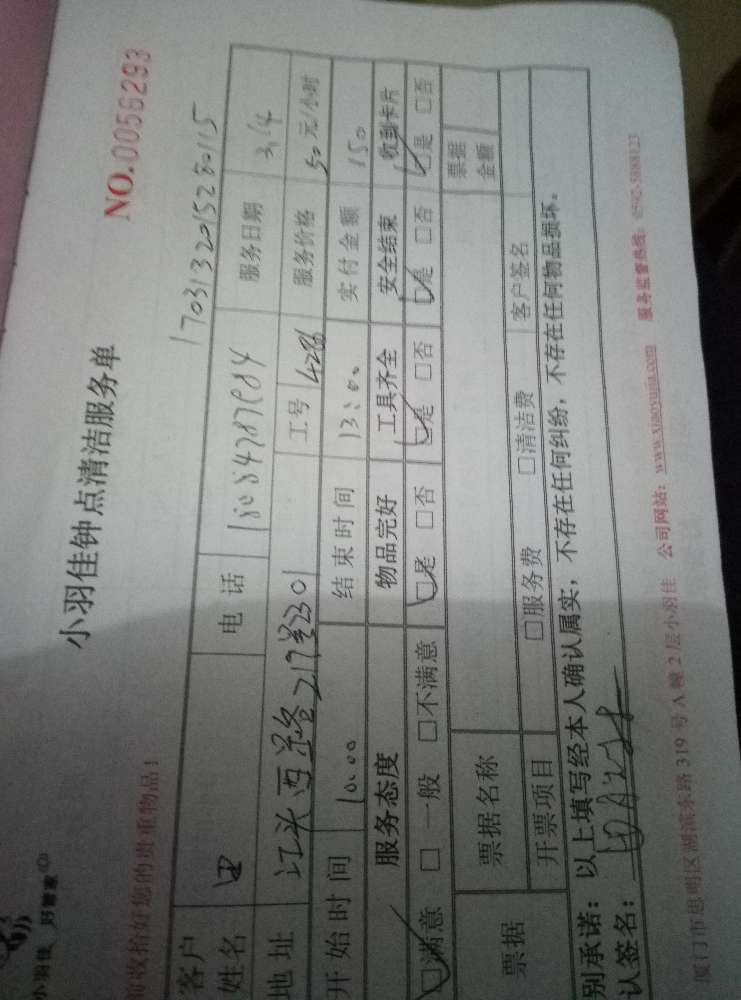 小羽佳 好管家
小羽佳钟点清洁服务单
NO.0056293
收拾好您的贵重物品！
1703132015280115
客户姓名 田 电话 服务日期 3.14
地址 江头西路217号2301 工号 4286 服务价格 50元/小时
开始时间 10:00 结束时间 13:00 实付金额 150
服务态度 物品完好 工具齐全 安全结束 收到卡片
□满意 □一般 □不满意 □是 □否 □是 □否 □是 □否 □是 □否
票据 票据名称 票据金额
开票项目 □服务费 □清洁费 客户签名
别承诺：以上填写经本人确认属实，不存在任何纠纷，不存在任何物品损坏。
认签名：
厦门市思明区湖滨东路319号A幢2层小羽佳 公司网站：www.xiaoyujia.com 服务监督热线：0592-5888123